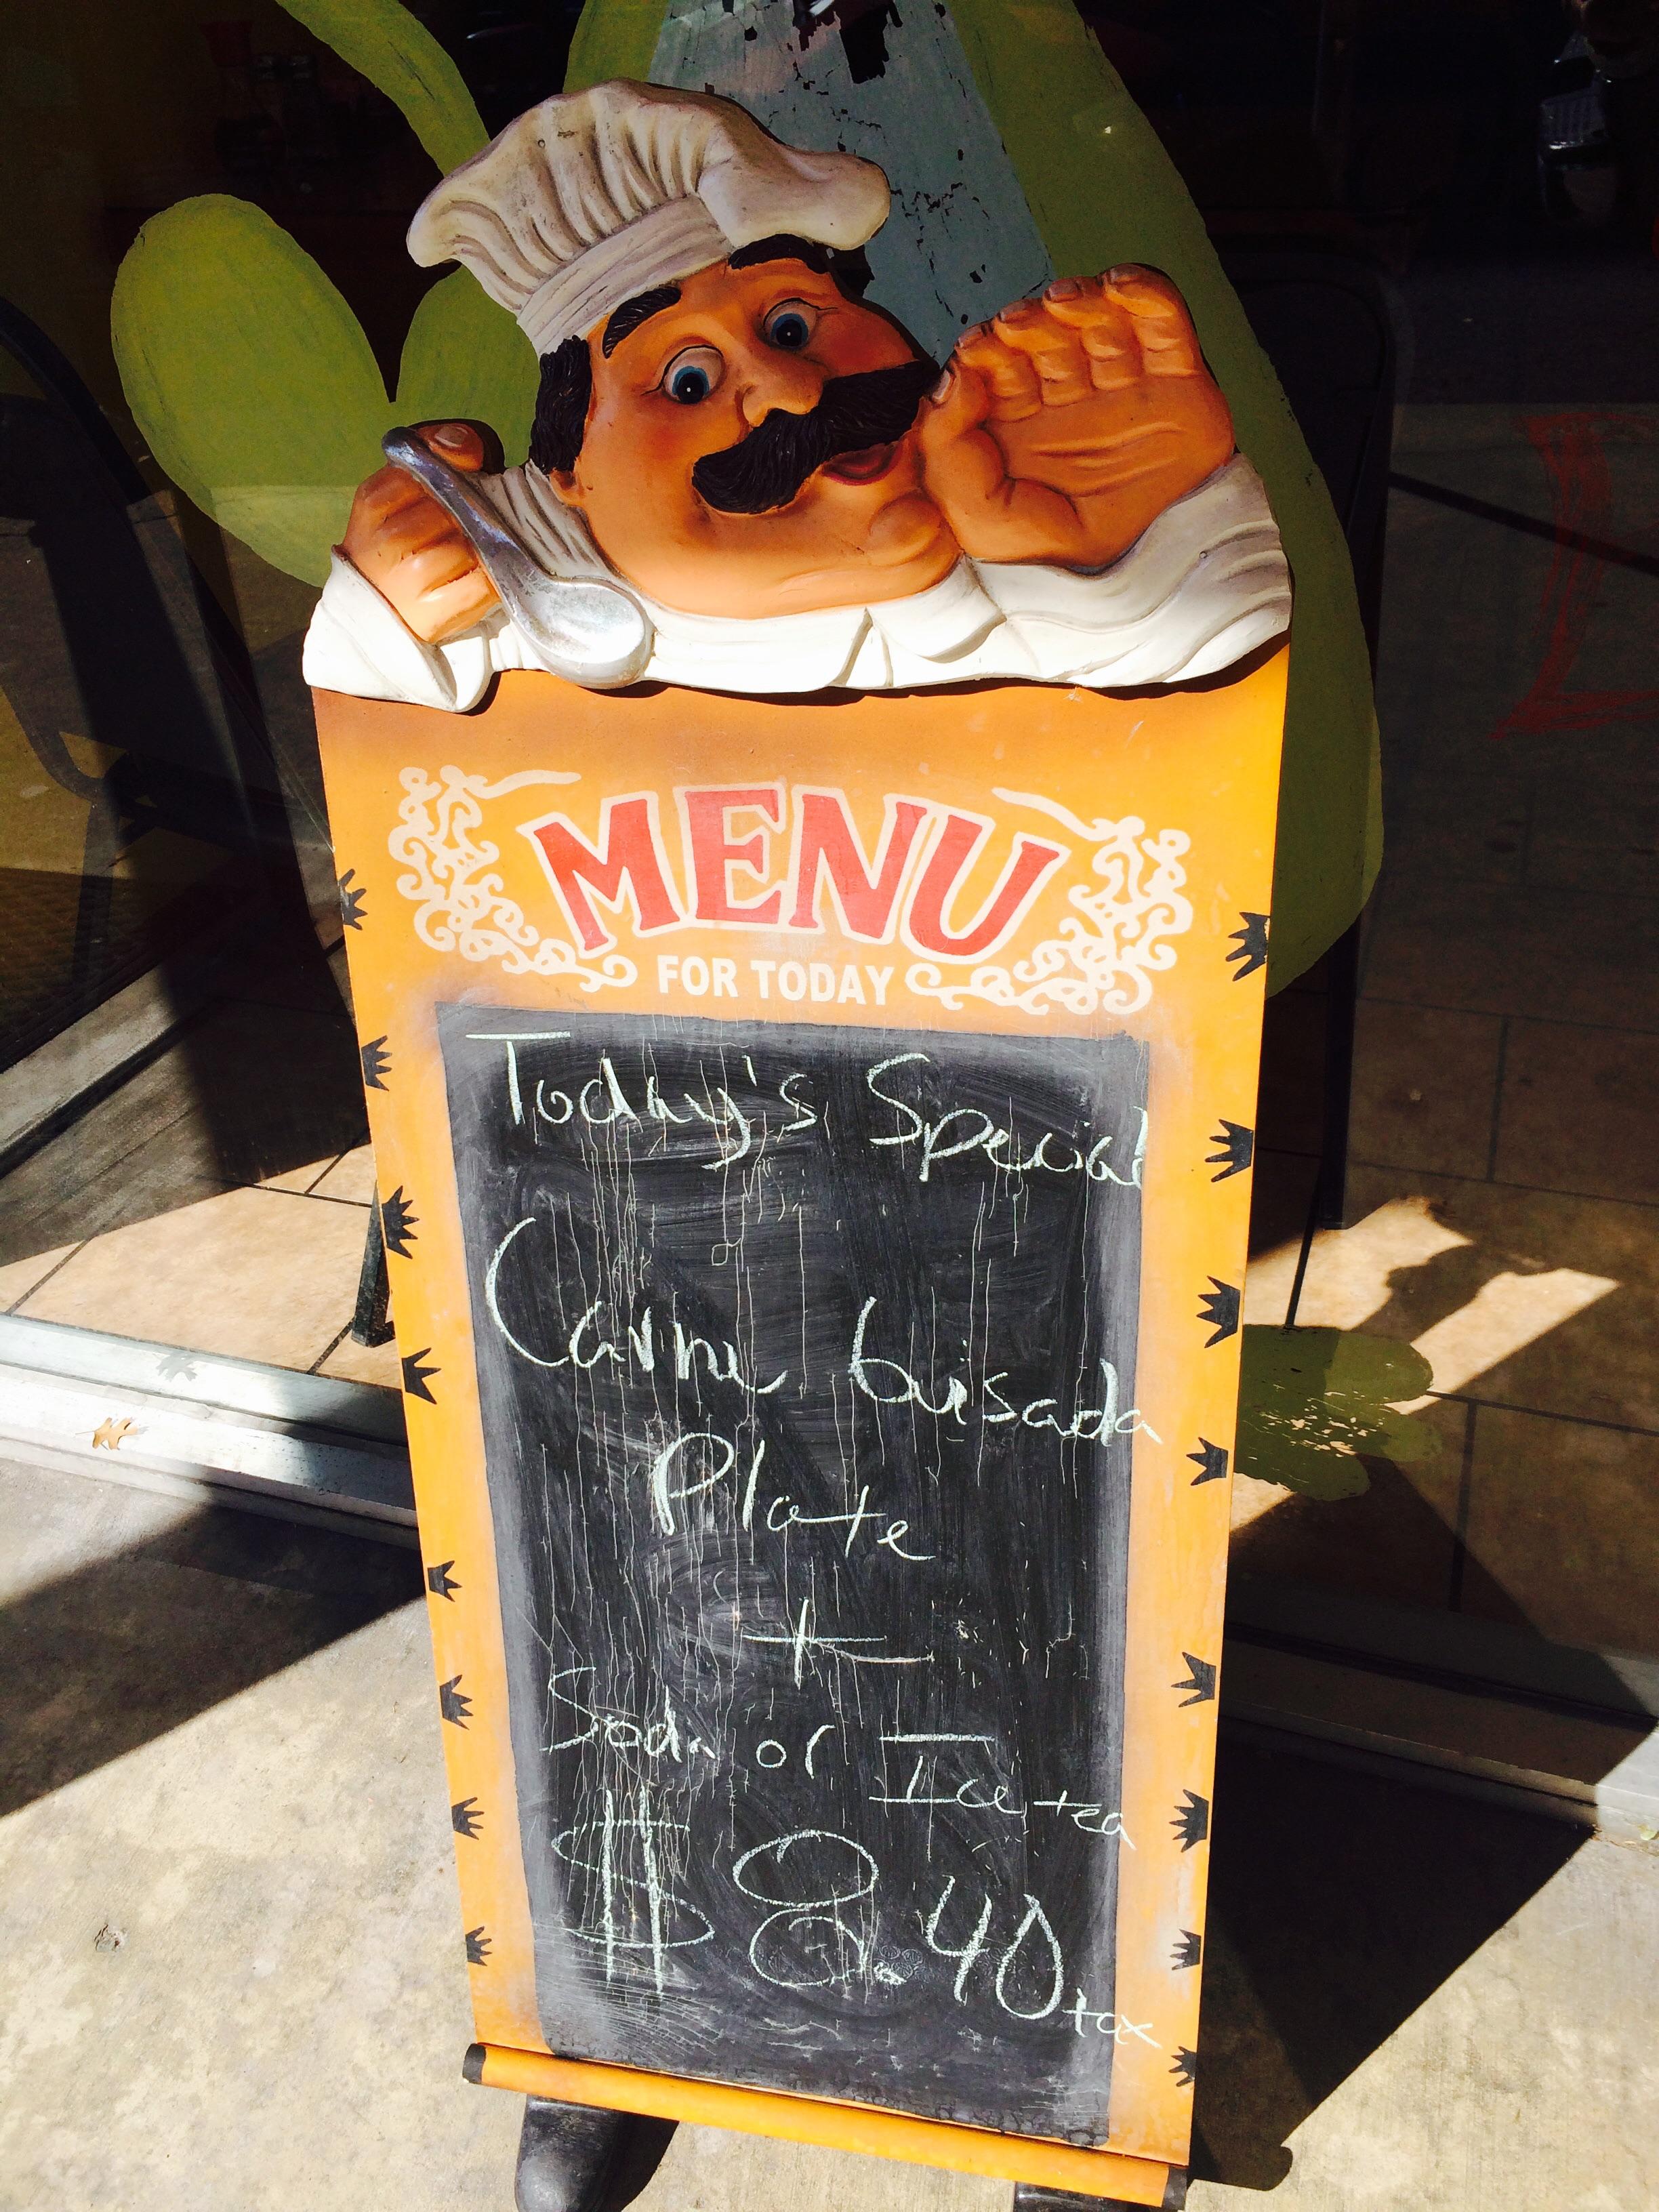 MENU
FOR TODAY
Today's Special
Carne Guisada
Plate
+
Soda or Ice tea
$8.40 tax